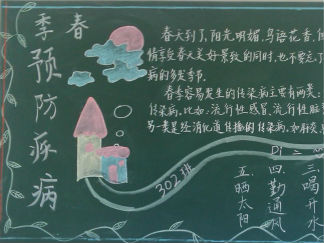 春季预防疾病
春天到了,阳光明媚,鸟语花香,
情享受春天美好景致的同时,也不要忘了
病的多发季节.
春季容易发生的传染病主要有两类:
传染病,比如:流行性感冒,流行性脑
另一类是经消化道传播的传染病,如肝炎,
302班
三喝开水
四勤通风
五晒太阳